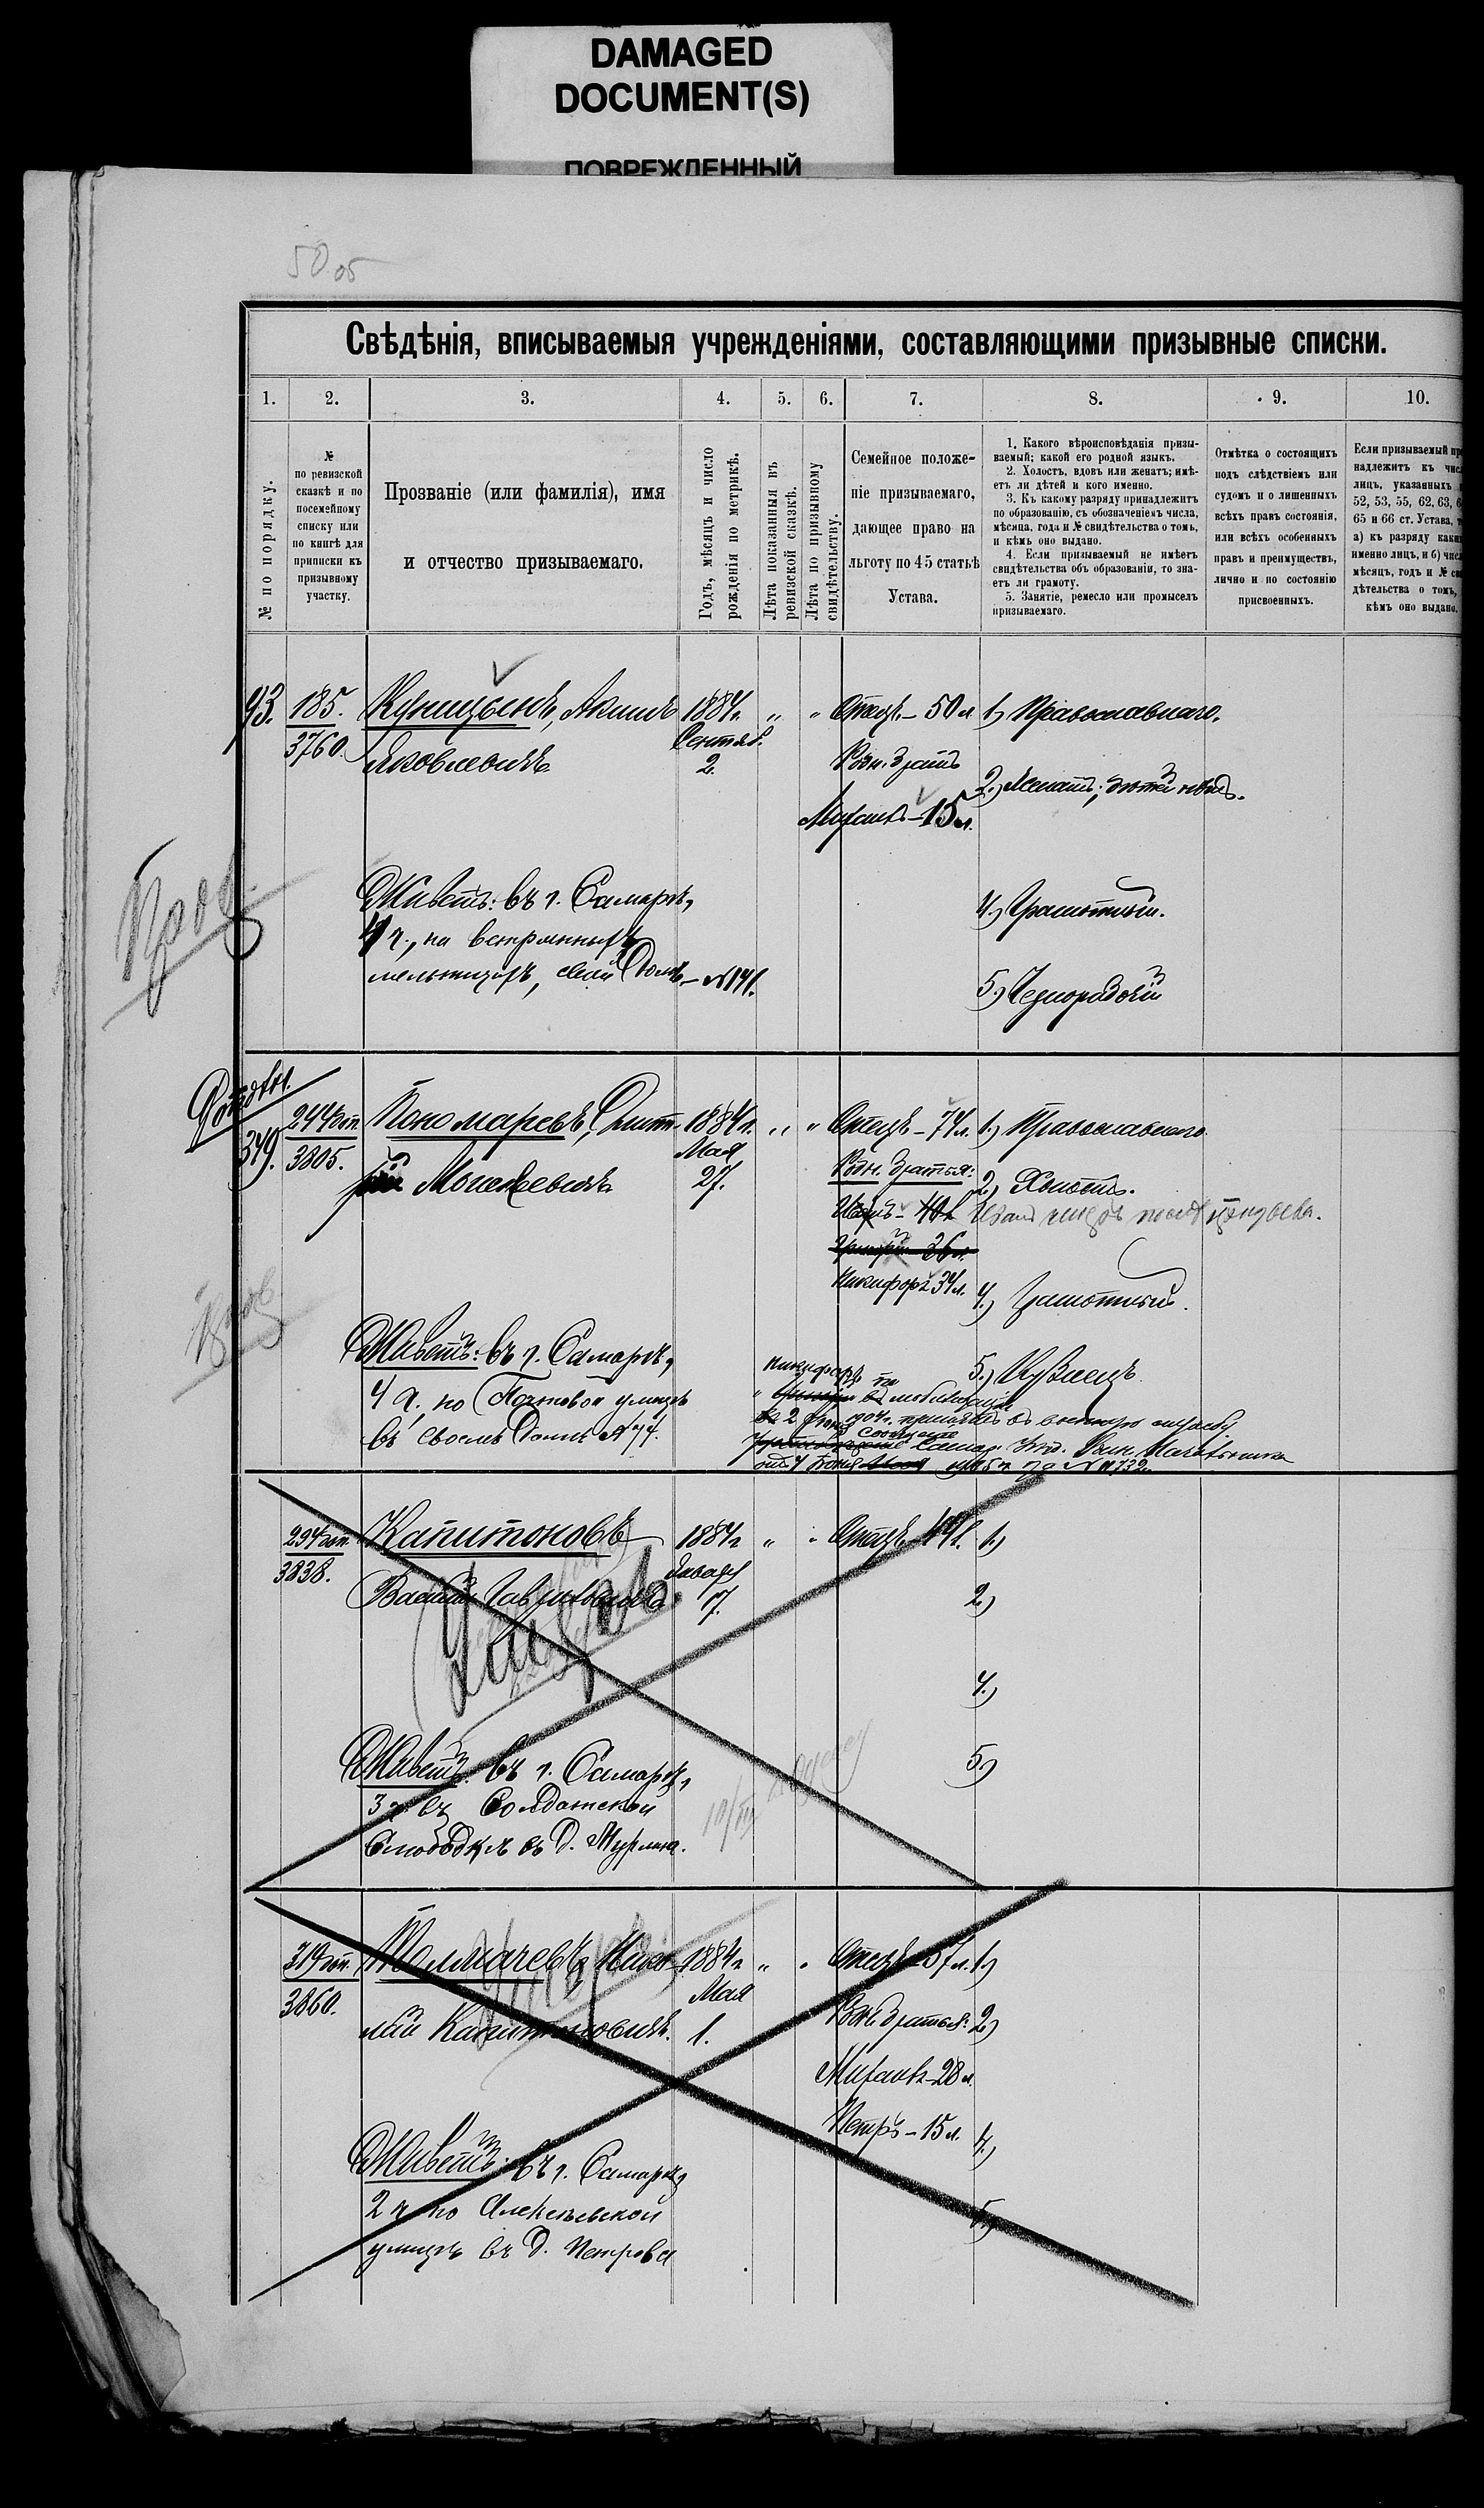 DAMAGED
DOCUMENT(S)
ПОВРЕЖДЕННЫЙ
50 об
Свѣдѣнія, вписываемыя учрежденіями, составляющими призывные списки.
1. 2. 3. 4. 5. 6. 7. 8. 9. 10.
№ по порядку.
№
по ревизской
сказкѣ и по
посемейному
списку или
по книгѣ для
приписки къ
призывному
участку.
Прозваніе (или фамилія), имя
и отчество призываемаго.
Годъ, мѣсяцъ и число
рожденія по метрикѣ.
Лѣта показанныя въ
ревизской сказкѣ.
Лѣта по призывному
свидѣтельству.
Семейное положе-
ніе призываемаго,
дающее право на
льготу по 45 статьѣ
Устава.
1. Какого вѣроисповѣданія призы-
ваемый; какой его родной языкъ.
2. Холостъ, вдовъ или женатъ; имѣ-
етъ ли дѣтей и кого именно.
3. Къ какому разряду принадлежитъ
по образованію, съ обозначеніемъ числа,
мѣсяца, года и № свидѣтельства о томъ,
и кѣмъ оно выдано.
4. Если призываемый не имѣетъ
свидѣтельства объ образованіи, то зна-
етъ ли грамоту.
5. Занятіе, ремесло или промыселъ
призываемаго.
Отмѣтка о состоящихъ
подъ слѣдствіемъ или
судомъ и о лишенныхъ
всѣхъ правъ состоянія,
или всѣхъ особенныхъ
правъ и преимуществъ,
лично и по состоянію
присвоенныхъ.
Если призываемый пр
надлежитъ къ чис
лицъ, указанныхъ
52, 53, 55, 62, 63, 6
65 и 66 ст. Устава, т
а) къ разряду каки
именно лицъ, и б) чис
мѣсяцъ, годъ и № св
дѣтельства о томъ,
кѣмъ оно выдано.
93. 185. Куницынъ, Акимъ 1884г. " " Отецъ - 50 л 1) Православнаго.
3760. Яковлевичъ Сентяб. 2. Родн. братъ
2.) Женатъ; дѣтей нѣтъ.
Михаилъ - 15 л.
Живетъ: въ г. Самарѣ, 4.) Грамотный.
4 ч., на вѣтрянныхъ
мельницахъ, свой домъ - №141. 5.) Чернорабочій
349. 244 1805. Пономаревъ, Дмит- 1884г. " " Отецъ - 74 л. 1.) Православнаго.
3805. рій Моисеевичъ Мая 27. Родн. братья:
2.) Холостъ.
Иванъ - 40 л.
Григорій 36 л.
Никифоръ 34 л. 4.) Грамотный.
Живетъ: въ г. Самарѣ, 5.)
4 ч., по Почтовой улицѣ
въ своемъ домѣ №74.
Никифоръ по
мобилизаціи
2 1904г. принятъ въ военную службу
сообщеніе Самар. Уѣзд. Воин. Начальника
294 Капитоновъ 1884г " " Отецъ 1.)
3838. Василій Гавриловичъ Января 17. 2.)
4.)
Живетъ: въ г. Самарѣ, 5.)
3 ч. въ Солдатской
Слободкѣ въ д. Мурзина.
319 Толмачевъ, Нико- 1884г " " Отецъ - 57 л. 1.)
3860. лай Капитоновичъ. Мая 1. Родн. братья: 2.)
Михаилъ - 28 л.
Петръ - 15 л. 4.)
Живетъ: въ г. Самарѣ,
2 ч по Алексѣевской 5.)
улицѣ въ д. Петрова